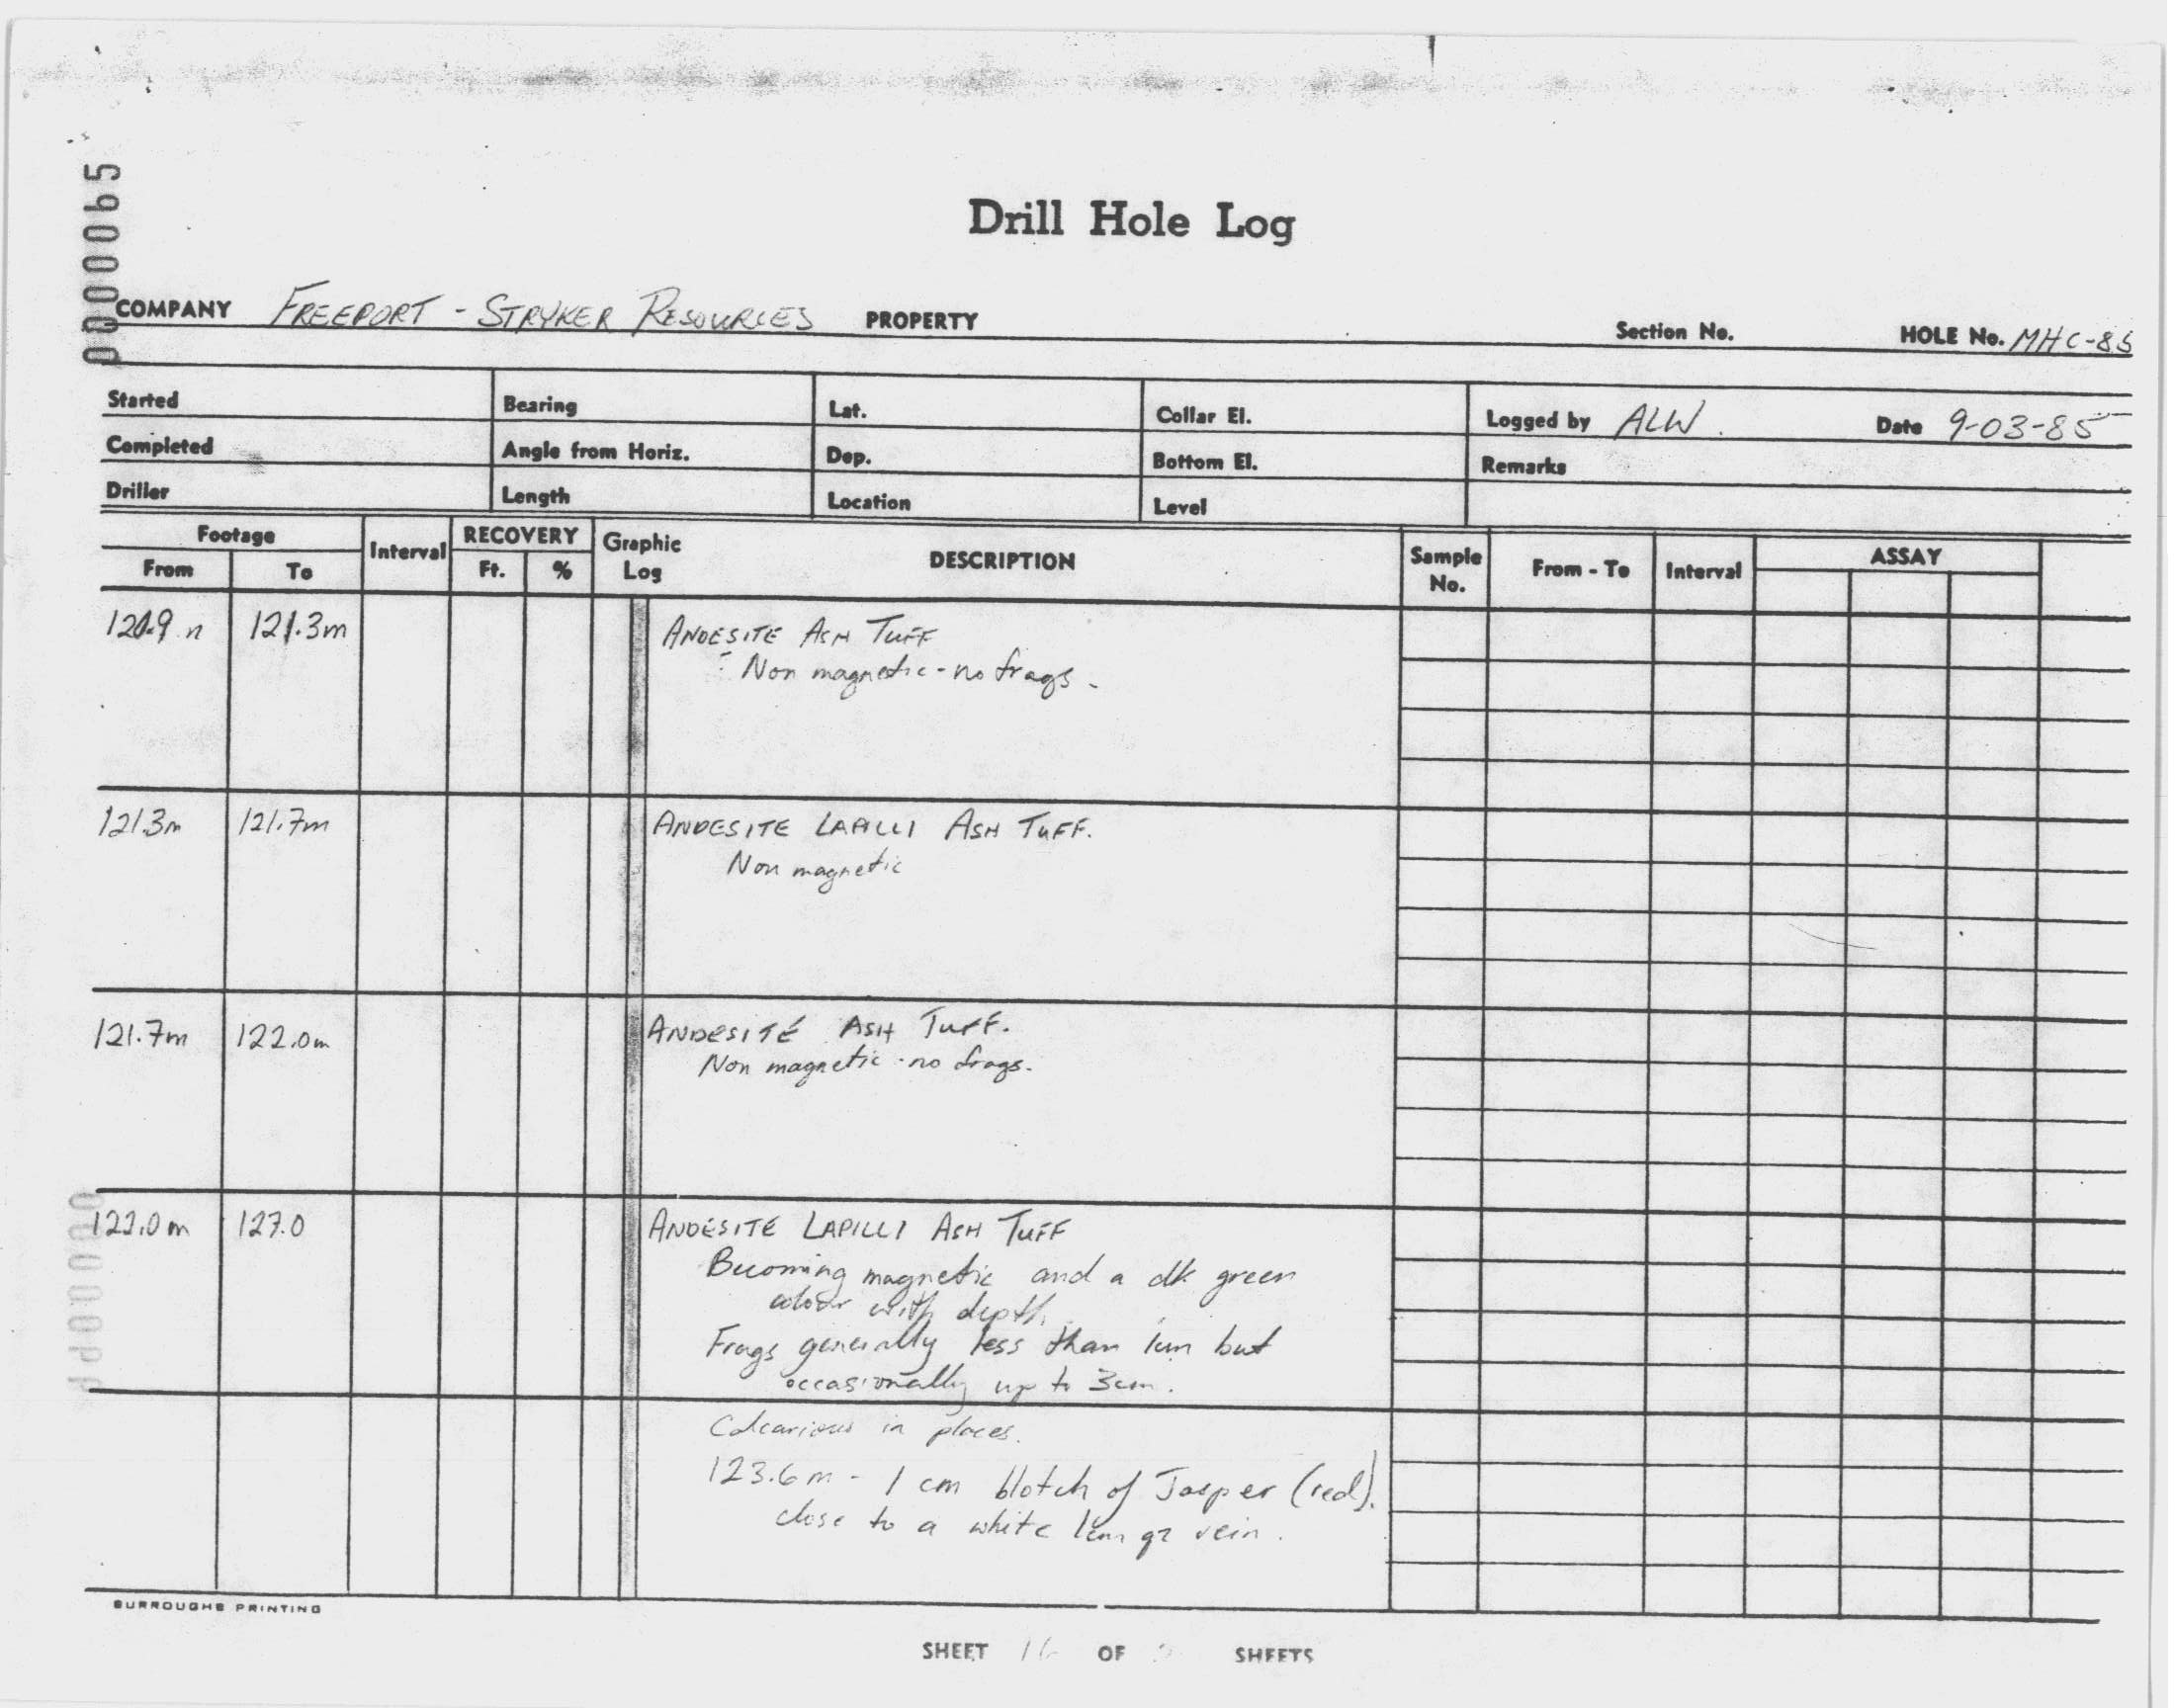 0000065
Drill Hole Log
COMPANY FREEPORT - STRYKER RESOURCES PROPERTY Section No. HOLE No. MHC-85
Started Bearing Lat. Collar El. Logged by ALW. Date 9-03-85
Completed Angle from Horiz. Dep. Bottom El. Remarks
Driller Length Location Level
Footage Interval RECOVERY Graphic Log DESCRIPTION Sample No. From - To Interval ASSAY
From To Ft. %
121.3m ANDESITE ASH TUFF
Non magnetic - no frags -
121.3m 121.7m ANDESITE LAPILLI ASH TUFF.
Non magnetic
121.7m 122.0m ANDESITE ASH TUFF.
Non magnetic - no frags.
122.0m 127.0 ANDESITE LAPILLI ASH TUFF
Becoming magnetic and a dk green
colour with depth
Frags generally less than 1cm but
occasionally up to 3cm.
Calcarious in places.
123.6m - 1 cm blotch of Jasper (red).
close to a white 1cm qz vein.
BURROUGHS PRINTING
SHEET 16 OF SHEETS